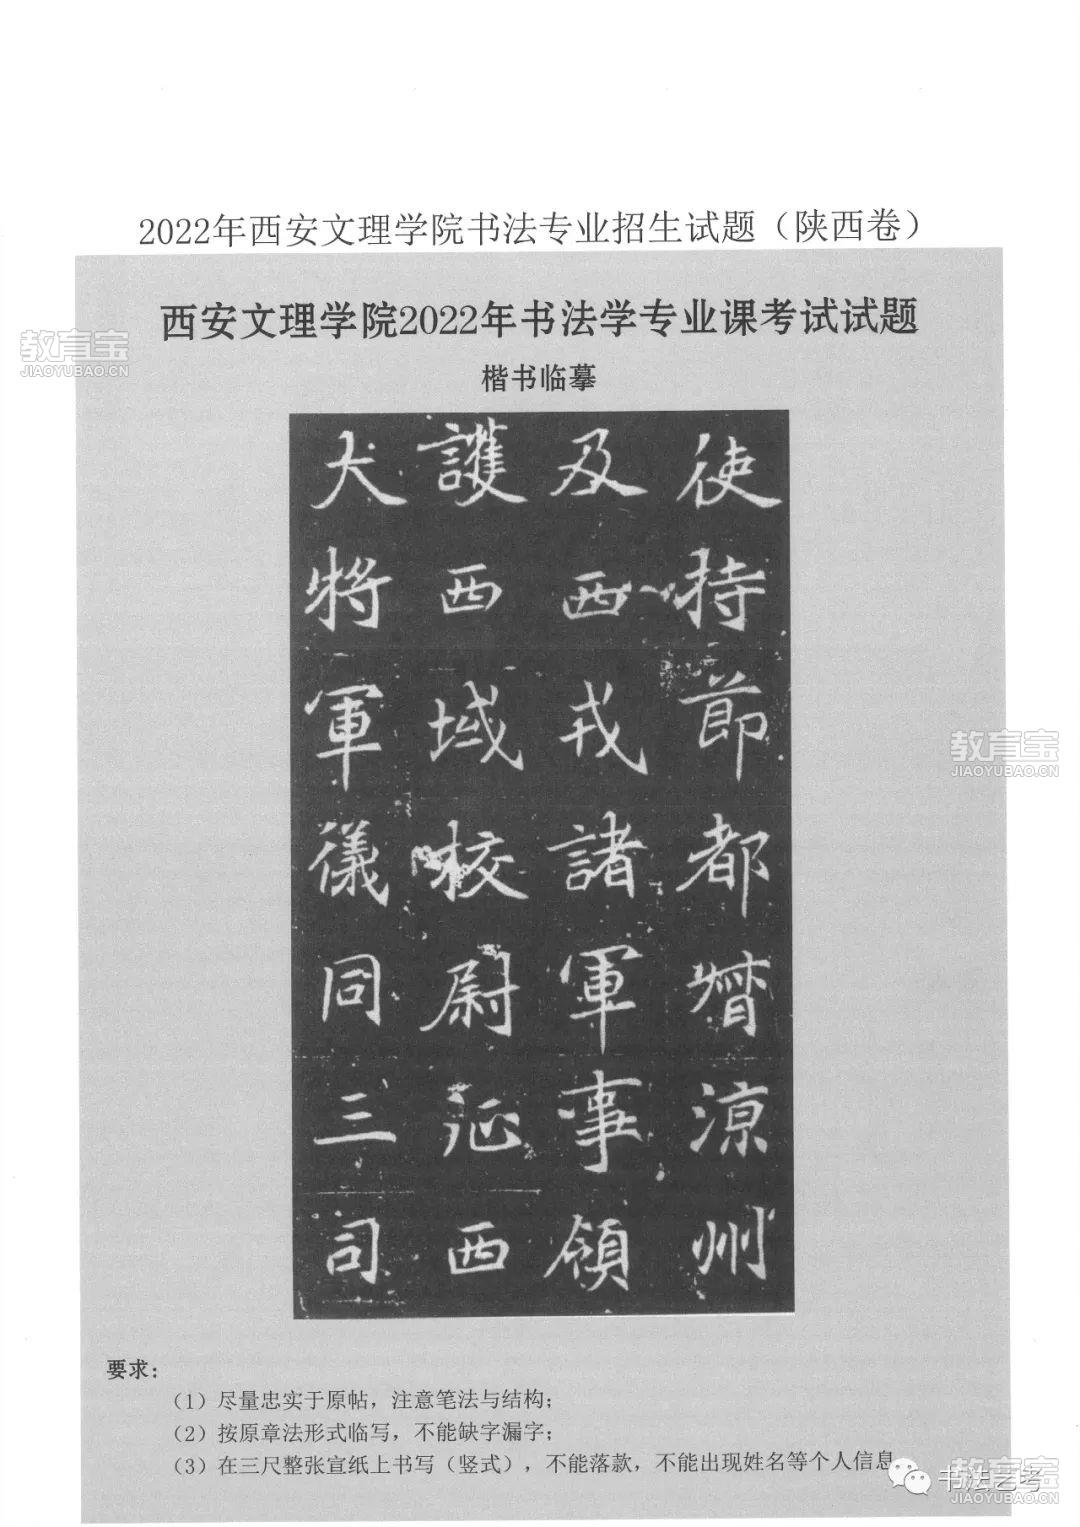 2022年西安文理学院书法专业招生试题（陕西卷）
西安文理学院2022年书法学专业课考试试题
楷书临摹
使持節都督涼州
及西戎諸軍事領
護西域校尉征西
大將軍儀同三司
要求：
（1）尽量忠实于原帖，注意笔法与结构；
（2）按原章法形式临写，不能缺字漏字；
（3）在三尺整张宣纸上书写（竖式），不能落款，不能出现姓名等个人信息
书法艺考
教育宝
JIAOYUBAO.CN
教育宝
JIAOYUBAO.CN
教育宝
JIAOYUBAO.CN